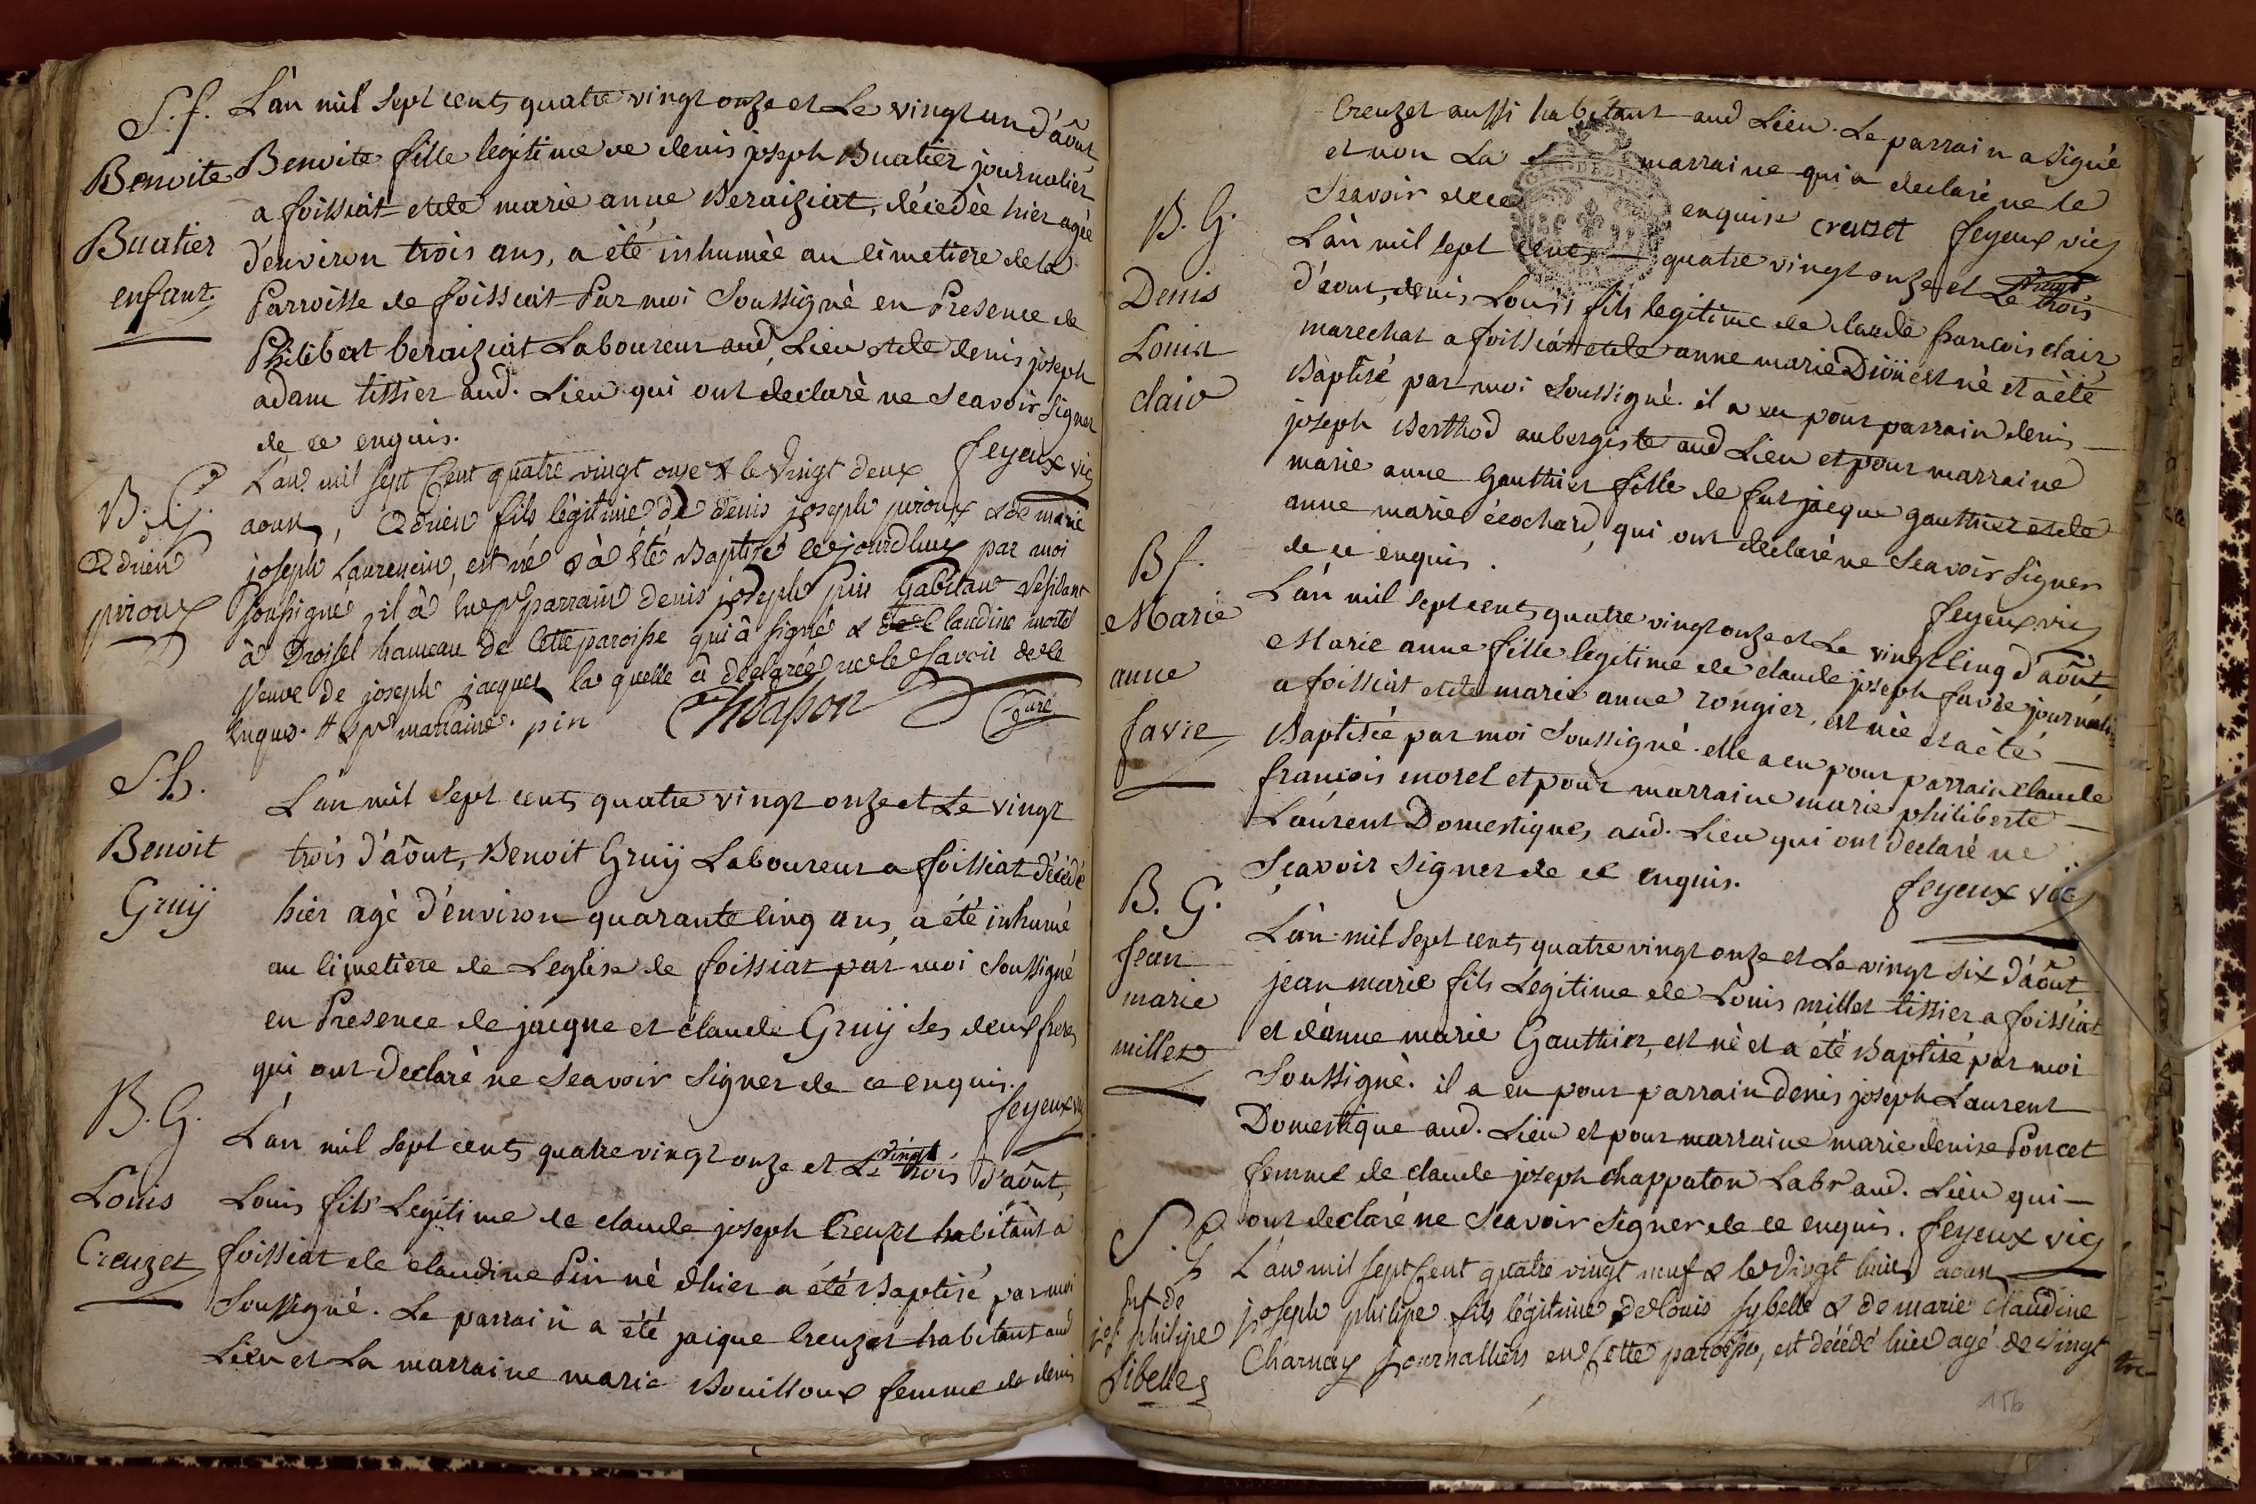 S. f.
Benoite
Buatier
enfant
L'an mil sept cents quatre vingt onze et Le vingt un d'août
Benoite fille legitime de denis joseph Buatier journalier
a foissiat et de marie anne Beraiziat, décedée hier agée
d'environ trois ans, a été inhumée au cimetiere de la
Parroisse de foissiat Par moi Soussigné en Presence de
Philibert beraiziat Laboureur aud. Lieu et de denis joseph
adam tissier aud. Lieu qui ont declaré ne Scavoir Signer
de ce enquis.
feyeux vic
B. G.
Adrien
piroux
L'an mil sept Cent quatre vingt onze & le vingt deux
aoust, Adrien fils légitime de denis joseph piroux & de marie
joseph Laurencin, est né & à été Baptisé ce jourdhuy par moi
soussigné, il à eu pr parrain denis joseph pin habitant résidant
à Droissel hameau de Cette paroisse qui à signé & de Claudine morel
veuve de joseph jacques la quelle à declarée ne le savoir de le
enquis. # & pr marraine. pin Chapon Curé
S. h.
Benoit
Gruÿ
L'an mil Sept cents quatre vingt onze et Le vingt
trois d'août, Benoit Gruÿ Laboureur a foissiat décédé
hier agé d'environ quarante cinq ans, a été inhumé
au cimetiere de L'eglise de foissiat par moi Soussigné
en Presence de jacque et claude Gruÿ ses deux freres
qui ont declaré ne Scavoir Signer de ce enquis.
feyeux vic
B. G.
Louis
Creuzet
L'an mil sept cents quatre vingt onze et Le vingt trois d'août,
Louis fils Legitime de claude joseph Creuzet habitant a
foissiat de claudine Pin né d'hier a été Baptisé par moi
Soussigné. Le parrain a été jaique Creuzet habitant aud
Lieu et La marraine marie Bouilloux femme de denis
Creuzet aussi habitant aud Lieu. Le parrain a Signé
et non La marraine qui a declaré ne le
Scavoir de ce enquise creuzet feyeux vic
B. G.
Denis
Louis
clair
L'an mil sept cents quatre vingt onze et Le vingt trois
d'aout, denis Louis fils legitime de claude francois clair
marechal a foissiat et de anne marie Dion est né et a été
Baptisé par moi Soussigné. il a eu pour parrain denis
joseph Berthod aubergiste aud Lieu et pour marraine
marie anne Gauthier fille de fut jacque gauthier et de
anne marie écochard, qui ont declaré ne Scavoir Signer
de ce enquis.
feyeux vic
B f.
Marie
anne
favre
L'an mil sept cents quatre vingt onze et Le vingt cinq d'août
Marie anne fille legitime de claude joseph favre journalier
a foissiat et de marie anne rongier, est née et a été
Baptisée par moi Soussigné. elle a eu pour parrain claude
francois morel et pour marraine marie philiberte
Laurent Domestiques aud. Lieu qui ont declaré ne
Scavoir Signer de ce enquis.
feyeux vic
B. G.
Jean
marie
millet
L'an mil Sept cents quatre vingt onze et Le vingt six d'août
jean marie fils Legitime de Louis millet tissier a foissiat
et d'anne marie Gauthier, est né et a été Baptisé par moi
Soussigné. il a eu pour parrain denis joseph Laurent
Domestique aud. Lieu et pour marraine marie denise Poncet
femme de claude joseph chappaton Labr aud. Lieu qui
ont declaré ne Scavoir Signer de ce enquis. feyeux vic
S. G
Enf de
jos philipe
Sibelle
L'an mil sept Cent quatre vingt neuf & le vingt huit aoust
joseph philipe fils légitime de louis Sybelle & de marie Claudine
Charnay journalliers en Cette paroisse, est décédé hier agé de vingt
156